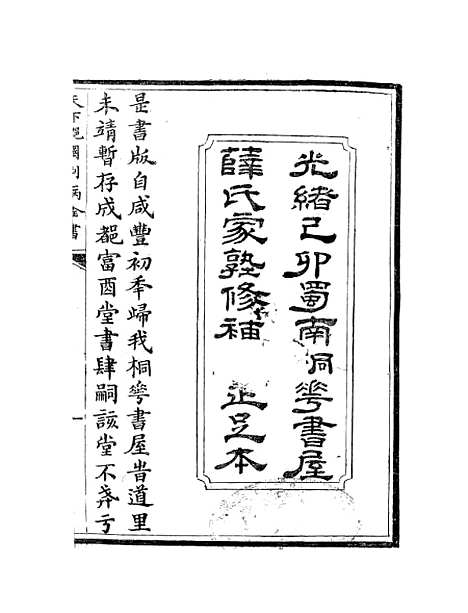 光緒己卯蜀南桐華書屋
薛氏家塾修補 足本
是書版自咸豐初年歸我桐華書屋昔道里
未靖暫存成都富酉堂書肆嗣該堂不戒于
天下郡國利病全書